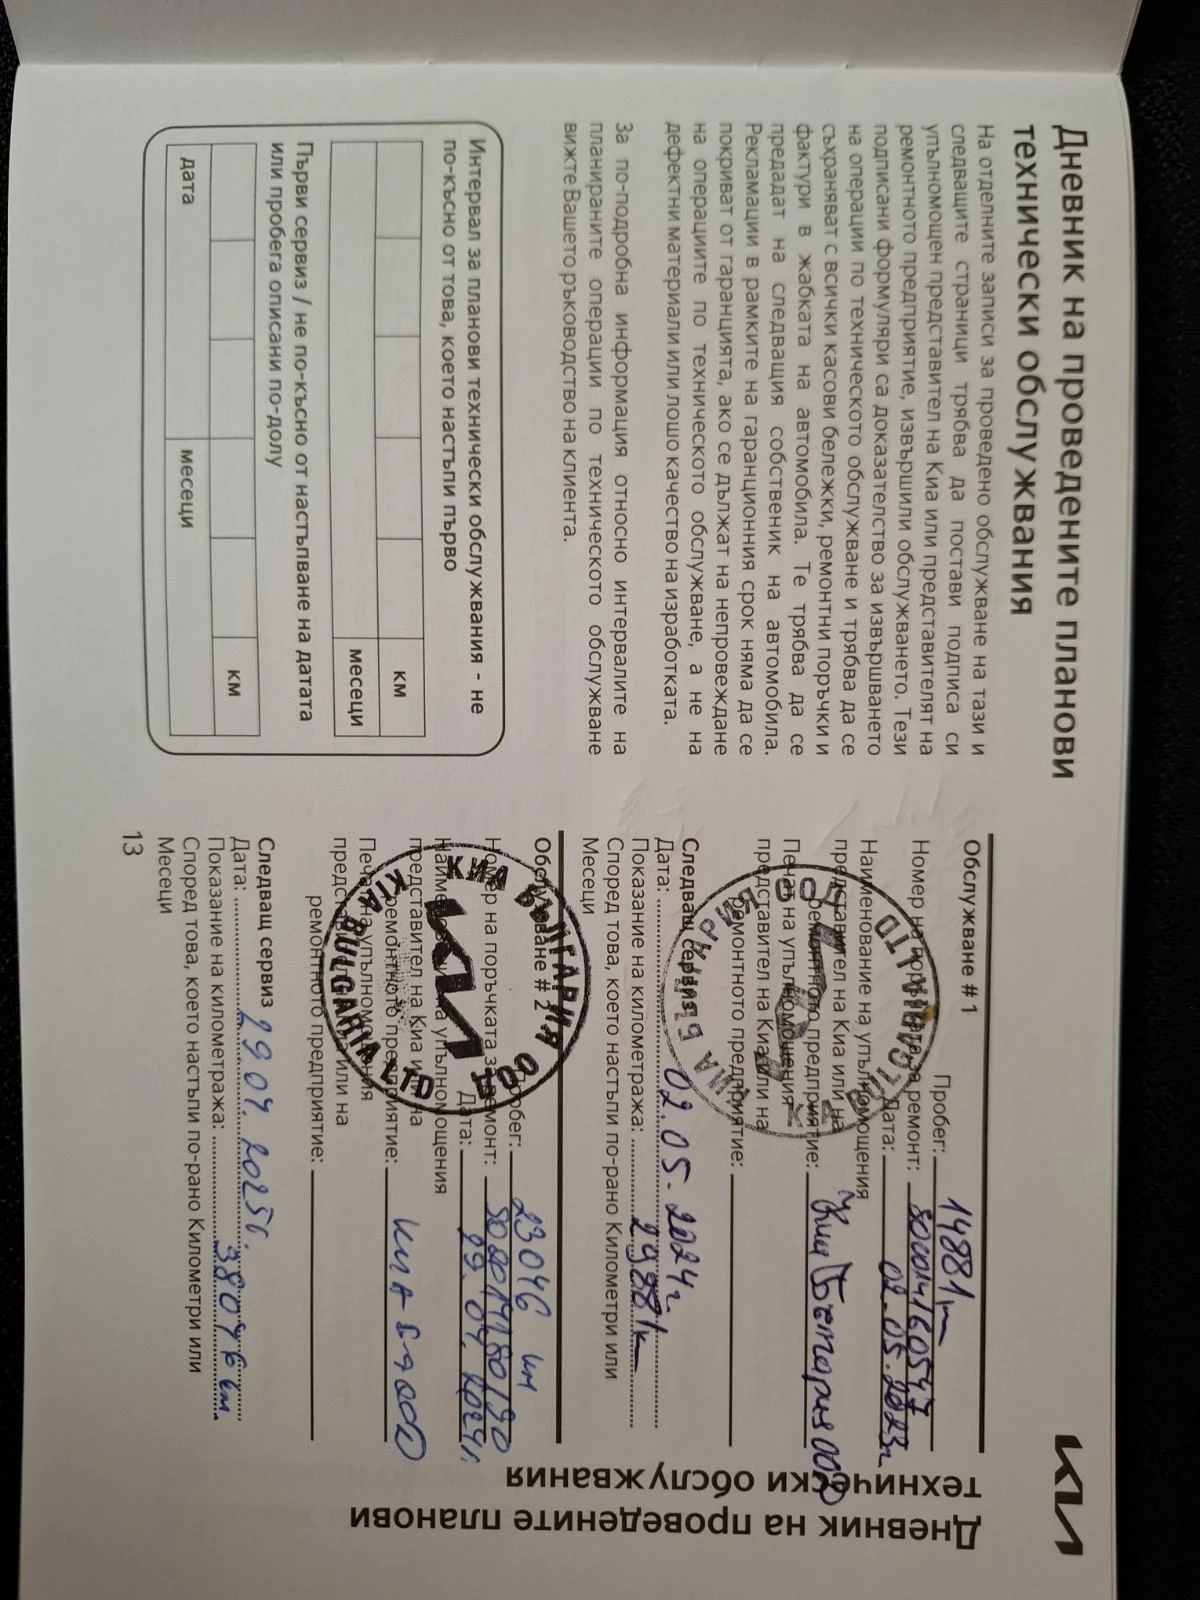 Дневник на проведените планови
технически обслужвания
На отделните записи за проведено обслужване на тази и
следващите страници трябва да постави подписа си
упълномощен представител на Киа или представителят на
ремонтното предприятие, извършили обслужването. Тези
подписани формуляри са доказателство за извършването
на операции по техническото обслужване и трябва да се
съхраняват с всички касови бележки, ремонтни поръчки и
фактури в жабката на автомобила. Те трябва да се
предадат на следващия собственик на автомобила.
Рекламации в рамките на гаранционния срок няма да се
покриват от гаранцията, ако се дължат на непровеждане
на операциите по техническото обслужване, а не на
дефектни материали или лошо качество на изработката.
За по-подробна информация относно интервалите на
планираните операции по техническото обслужване
вижте Вашето ръководство на клиента.
Интервал за планови технически обслужвания - не
по-късно от това, което настъпи първо
км
месеци
Първи сервиз / не по-късно от настъпване на датата
или пробега описани по-долу
км
дата месеци
KIA
Обслужване # 1
Пробег: 14881
Номер на поръчката за ремонт: 8000160547
Дата: 02.05.2023г
Наименование на упълномощения
представител на Киа или на
ремонтното предприятие: Киа България ООД
Печат на упълномощения
представител на Киа или на
ремонтното предприятие:
Следващ сервиз
Дата: 02.05.2024г
Показание на километража: 29881
Според това, което настъпи по-рано Километри или
Месеци
Обслужване # 2
Пробег: 23046 км
Номер на поръчката за ремонт:
Дата: 29.04.2024г
Наименование на упълномощения
представител на Киа или на
ремонтното предприятие: КИА БГ ООД
Печат на упълномощения
представител на Киа или на
ремонтното предприятие:
КИА БЪЛГАРИЯ ООД
KIA BULGARIA LTD
Следващ сервиз
Дата: 29.04.2025г.
Показание на километража: 38046 км.
Според това, което настъпи по-рано Километри или
Месеци
13
Дневник на проведените планови
технически обслужвания